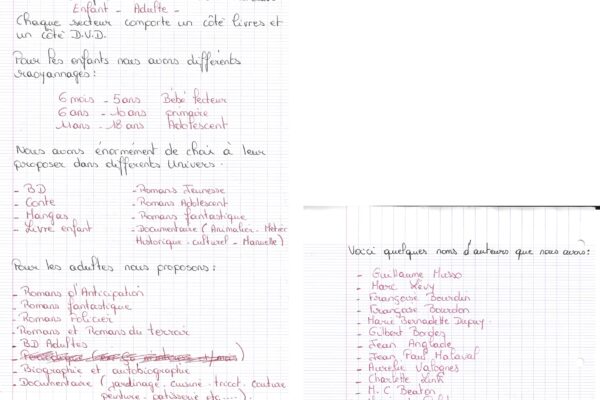 Enfant - Adulte -
Chaque secteur comporte un côté livres et
un côté D.V.D.
Pour les enfants nous avons différents
rayonnages :
6 mois - 5 ans Bébé lecteur
6 ans - 10 ans primaire
11 ans - 18 ans Adolescent
Nous avons énormément de choix à leur
proposer dans différents Univers.
- BD
- Conte
- Mangas
- Livre enfant
- Romans Jeunesse
- Romans Adolescent
- Romans fantastique
- Documentaire (Animalier - Métier
Historique - culturel - Manuelle)
Pour les adultes nous proposons :
- Romans d'Anticipation
- Romans fantastique
- Romans Policier
- Romans et Romans du terroir
- BD Adultes
- Biographie et autobiographie
- Documentaire (jardinage - cuisine - tricot - couture
peinture - patisserie etc....)
Voici quelques noms d'auteurs que nous avons :
- Guillaume Musso
- Marc Lévy
- Françoise Bourdin
- Françoise Bourdon
- Marie Bernadette Dupuy
- Gilbert Bordes
- Jean Anglade
- Jean Paul Malaval
- Aurélie Valognes
- Charlotte Link
- M. C. Beaton